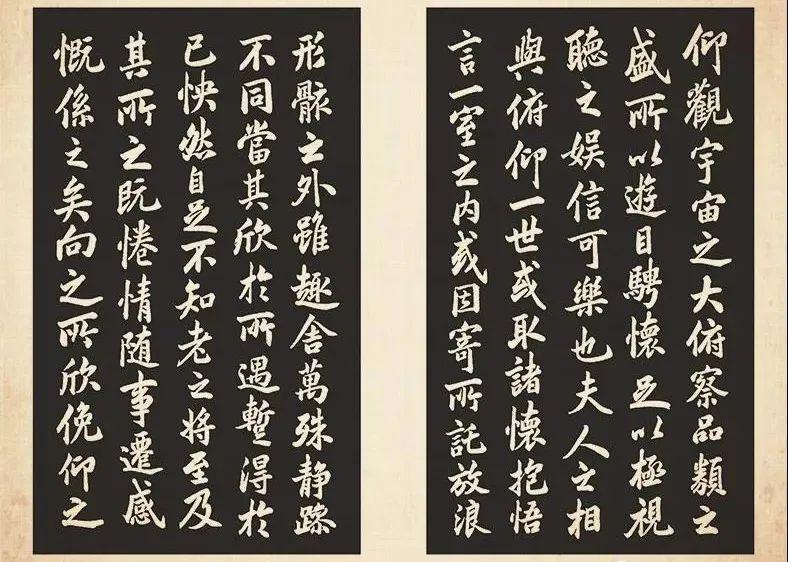 仰觀宇宙之大俯察品類之
盛所以遊目騁懷足以極視
聽之娛信可樂也夫人之相
與俯仰一世或取諸懷抱悟
言一室之内或因寄所託放浪
形骸之外雖趣舍萬殊静躁
不同當其欣於所遇暫得於
已怏然自足不知老之將至及
其所之既惓情随事遷感
慨係之矣向之所欣俛仰之